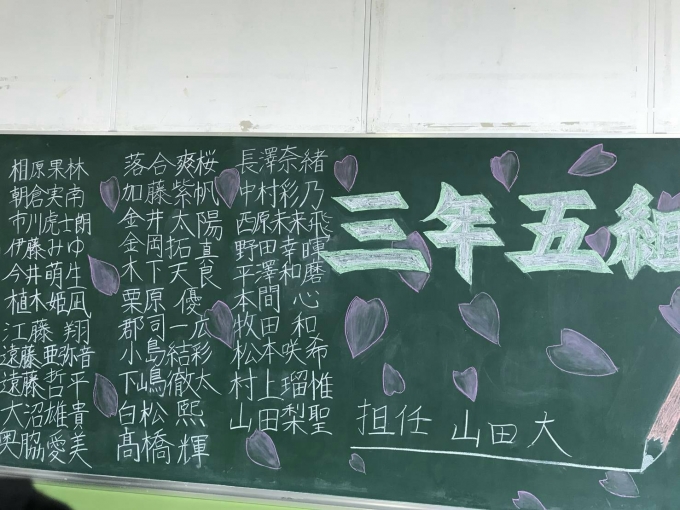 相原果林
朝倉実南
市川虎士朗
伊藤みゆ
今井萌生
植木姫凪
江藤翔
遠藤亜弥音
遠藤哲平
大沼雄貴
奥脇愛美
落合爽桜
加藤紫帆
金井太陽
金岡拓真
木下天良
栗原優
郡司一瓜
小島結彩
下嶋徹太
白松熙
髙橋輝
長澤奈緒
中村彩乃
西原未来飛
野田幸暉
平澤和磨
本間心
牧田和
松本咲希
村上瑠惟
山田梨聖
三年五組
担任 山田大